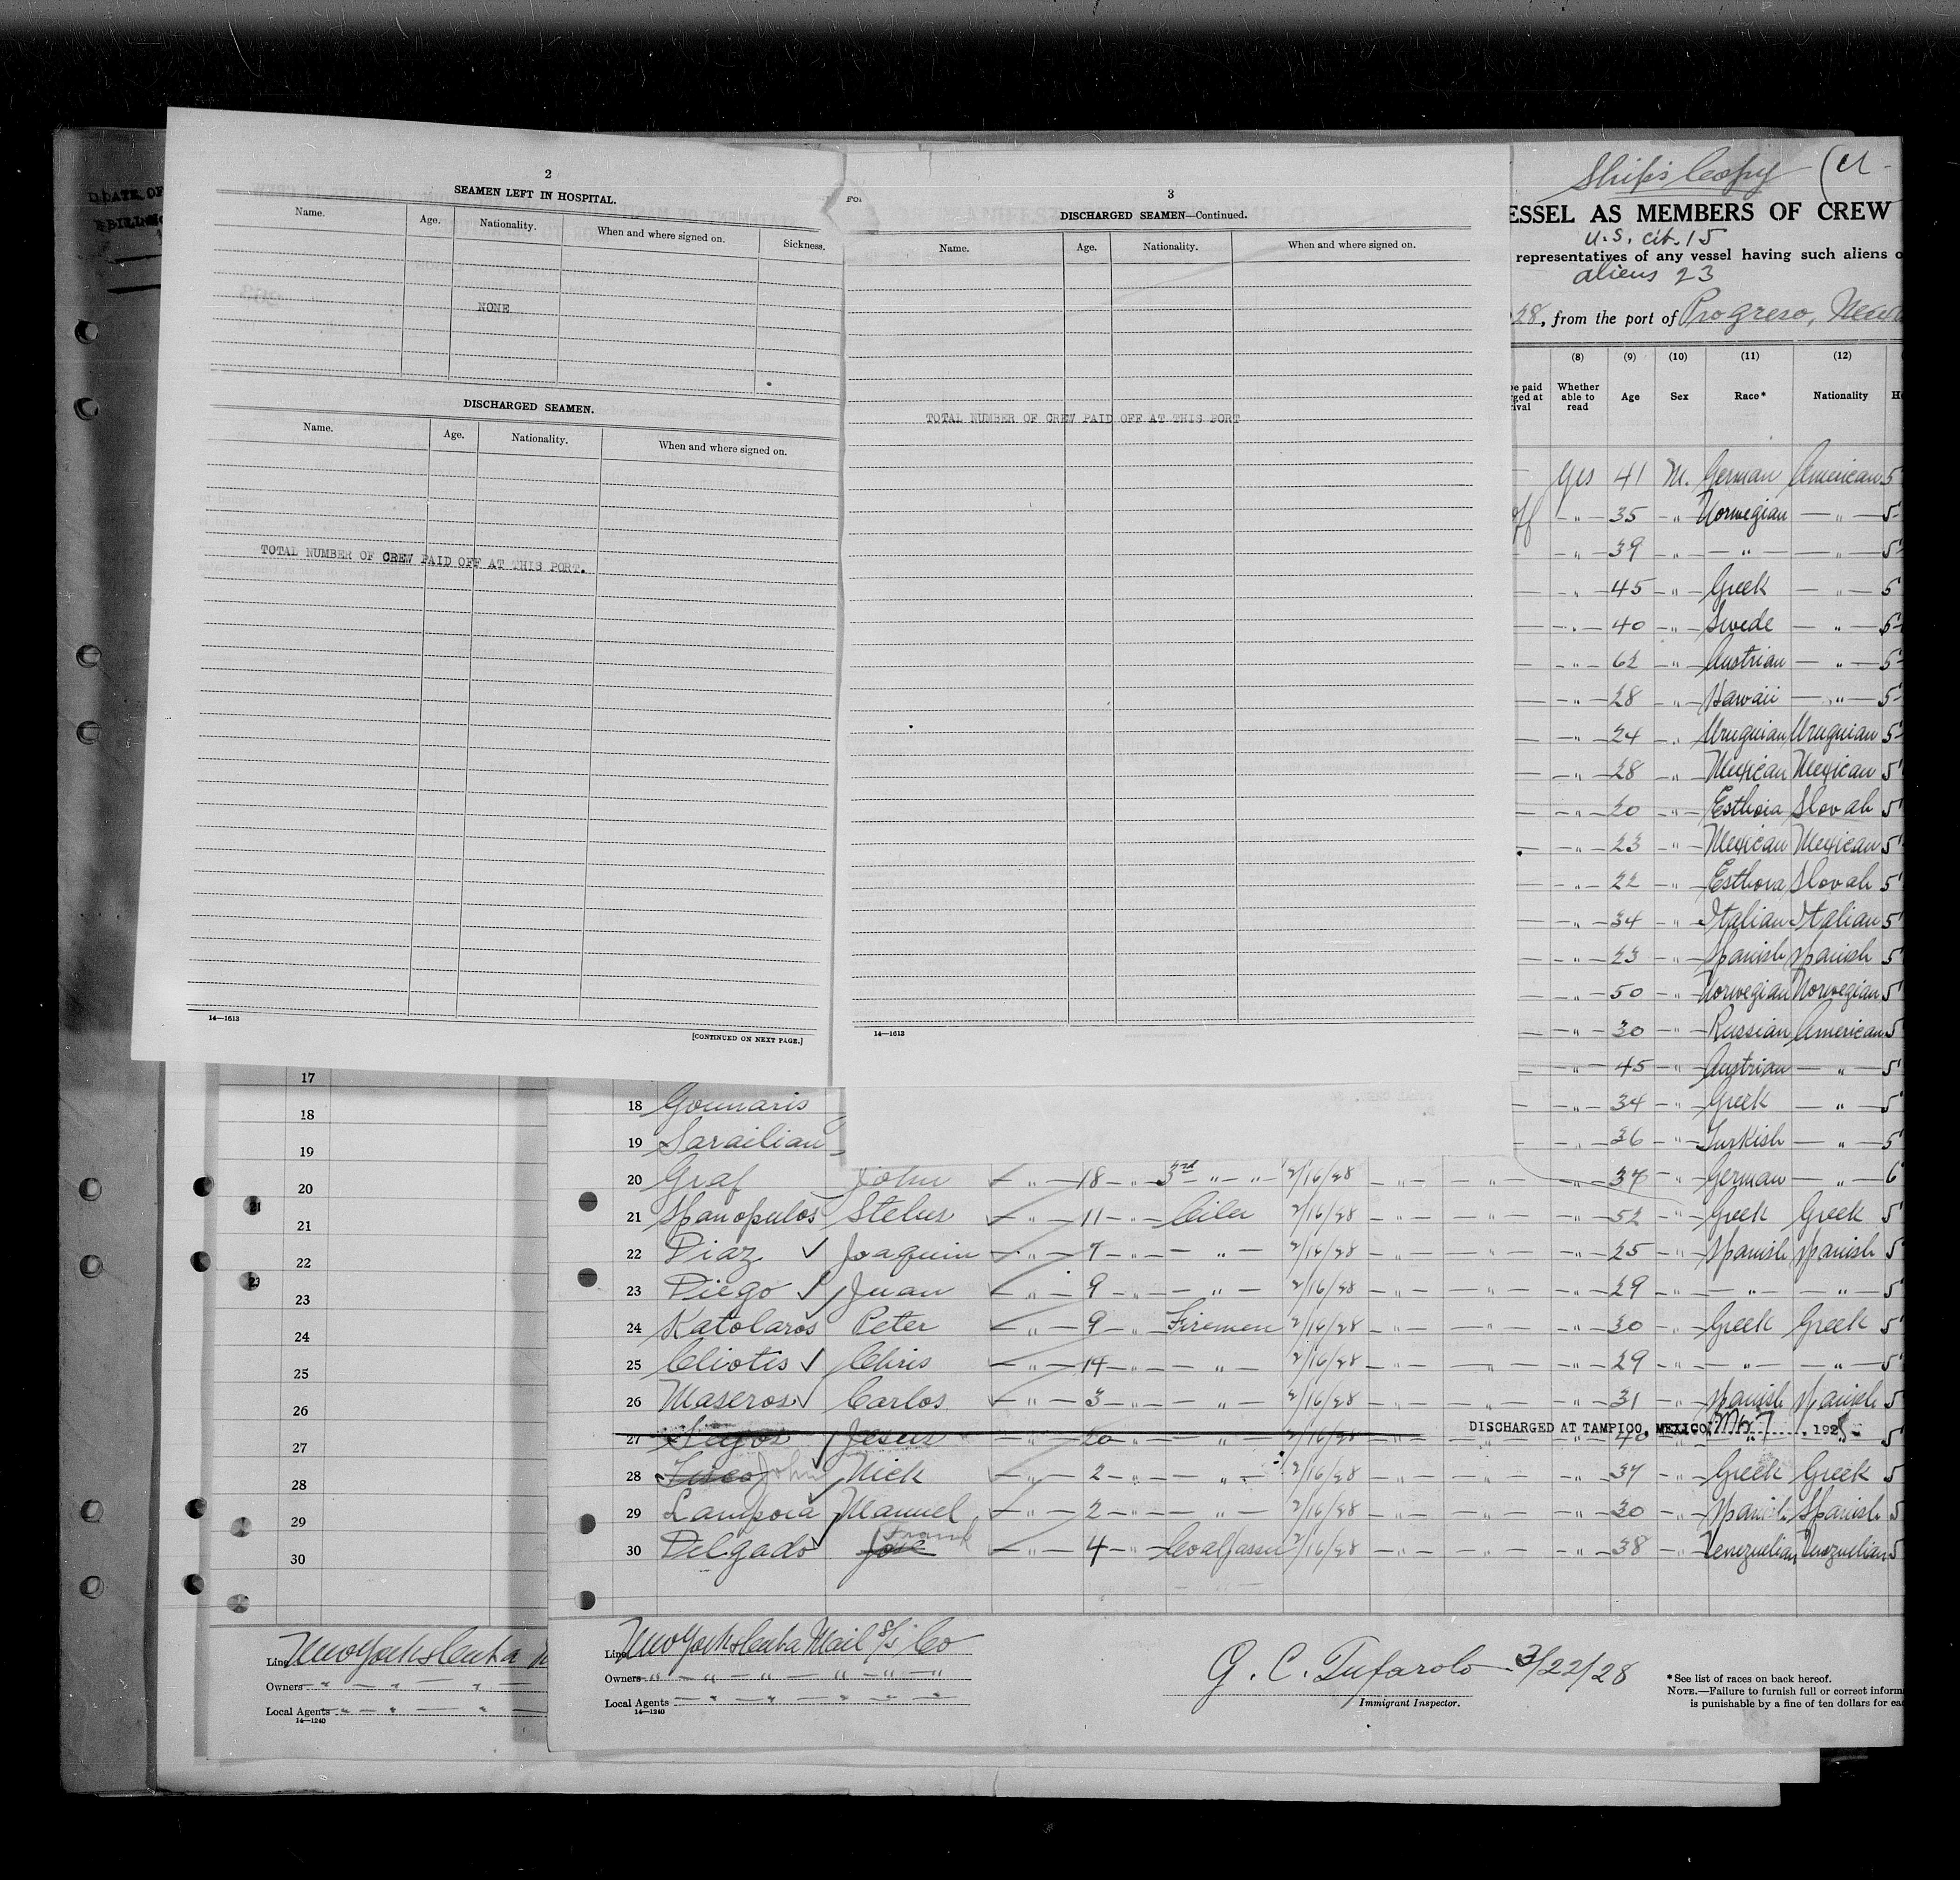 2
SEAMEN LEFT IN HOSPITAL.
Name. Age. Nationality. When and where signed on. Sickness.
NONE
DISCHARGED SEAMEN.
Name. Age. Nationality. When and where signed on.
TOTAL NUMBER OF CREW PAID OFF AT THIS PORT.
14—1613
[CONTINUED ON NEXT PAGE.]
3
DISCHARGED SEAMEN—Continued.
Name. Age. Nationality. When and where signed on.
TOTAL NUMBER OF CREW PAID OFF AT THIS PORT
14—1613
Ship's Copy
ESSEL AS MEMBERS OF CREW
U.S. cit. 15
representatives of any vessel having such aliens o
aliens 23
28, from the port of Progreso,
(8) (9) (10) (11) (12)
Whether able to read Age Sex Race* Nationality
yes 41 M. German American 5
off — " — 35 — " — Norwegian — " — 5
— " — 39 — " — — " — — " — 5
— " — 45 — " — Greek — " — 5
— " — 40 — " — Swede — " — 5
— " — 62 — " — Austrian — " — 5
— " — 28 — " — Hawaii — " — 5
— " — 24 — " — Uruguian Uruguian 5
— " — 28 — " — Mexican Mexican 5
— " — 20 — " — Slovak 5
— " — 23 — " — Mexican Mexican 5
— " — 22 — " — Esthova Slovak 5
— " — 34 — " — Italian Italian 5
— " — 23 — " — Spanish Spanish 5
— " — 50 — " — Norwegian Norwegian 5
— " — 30 — " — Russian American 5
— " — 45 — " — Austrian — " — 5
18 Gounaris — " — 34 — " — Greek — " — 5
19 Sarailian — " — 36 — " — Turkish — " — 5
20 Graf John — " — 18 — " — 3rd — " — " — 2/16/28 — " — — " — — " — German — " — 6
21 Spanopulos Stelus — " — 11 — " — Oiler 2/16/28 — " — — " — — " — 52 — " — Greek Greek 5
22 Diaz ✓ Joaquin — " — 7 — " — — " — 2/16/28 — " — — " — — " — 25 — " — Spanish Spanish 5
23 Diego ✓ Juan — " — 9 — " — — " — 2/16/28 — " — — " — — " — 29 — " — — " — — " — 5
24 Katolaros Peter — " — 9 — " — Firemen 2/16/28 — " — — " — — " — 30 — " — Greek Greek 5
25 Cliotis ✓ Chris — " — 14 — " — — " — 2/16/28 — " — — " — — " — 29 — " — — " — — " — 5
26 Maseros ✓ Carlos — " — 3 — " — — " — 2/16/28 — " — — " — — " — 31 — " — Spanish Spanish 5
27 Jesus — " — 20 — " — — " — 2/16/28 DISCHARGED AT TAMPICO, MEXICO, 192 40 5
28 John ✓ Nick — " — 2 — " — — " — 2/16/28 — " — — " — — " — 37 — " — Greek Greek 5
29 Lampoia Manuel — " — 2 — " — — " — 2/16/28 — " — — " — — " — 30 — " — Spanish Spanish 5
30 Delgado ✓ Jose Frank — " — 4 — " — 2/16/28 — " — — " — — " — 38 — " — Venezuelian Venezuelian 5
17
18
19
20
21
22
23
24
25
26
27
28
29
30
Line New York & Cuba
Owners — " — " — " —
Local Agents — " — " — " —
14—1240
Line New York & Cuba Mail S/S Co
Owners — " — " — " — " — " — "
Local Agents — " — " — " — " — "
14—1240
G. C. Tufarolo 3/22/28
Immigrant Inspector.
*See list of races on back hereof.
NOTE.—Failure to furnish full or correct informa
is punishable by a fine of ten dollars for ea